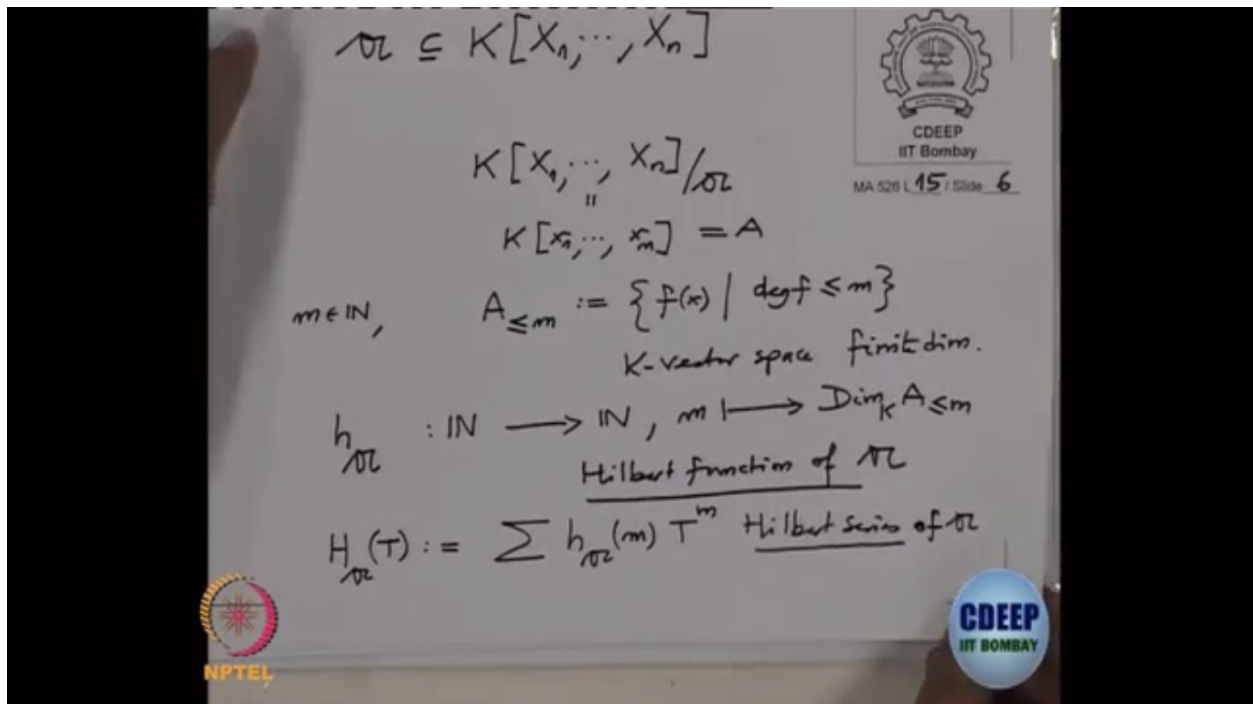 𝔞 ⊆ K[X₁,⋯, Xₙ]
CDEEP
IIT Bombay
MA 526 L 15 / Slide 6
K[X₁,⋯, Xₙ]/𝔞
"
K[x₁,⋯, xₘ] = A
m ∈ ℕ, A≤m := {f(x) | deg f ≤ m}
K-vector space finite dim.
h𝔞 : ℕ ⟶ ℕ, m ⟼ Dim_K A≤m
Hilbert function of 𝔞
H𝔞(T) := ∑ h𝔞(m) Tᵐ Hilbert series of 𝔞
NPTEL
CDEEP
IIT BOMBAY